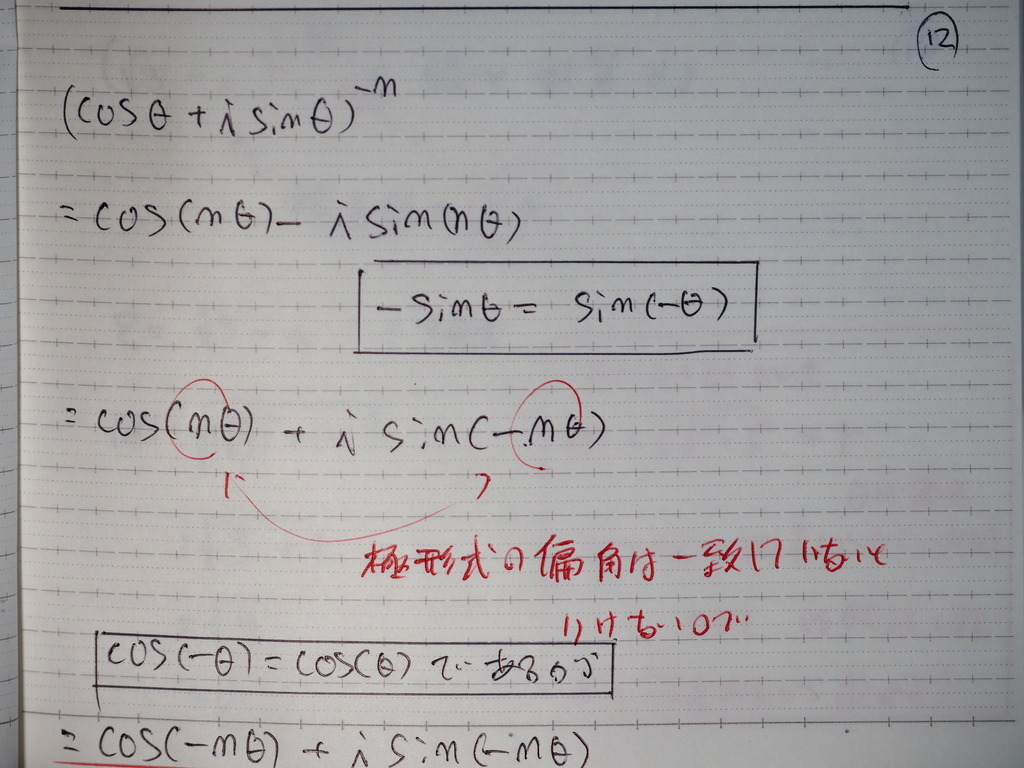 12
(cosθ + i sinθ)^-n
= cos(nθ) - i sin(nθ)
- sinθ = sin(-θ)
= cos(nθ) + i sin(-nθ)
極形式の偏角は一致していないと
いけないので
cos(-θ) = cos(θ) であるので
= cos(-nθ) + i sin(-nθ)